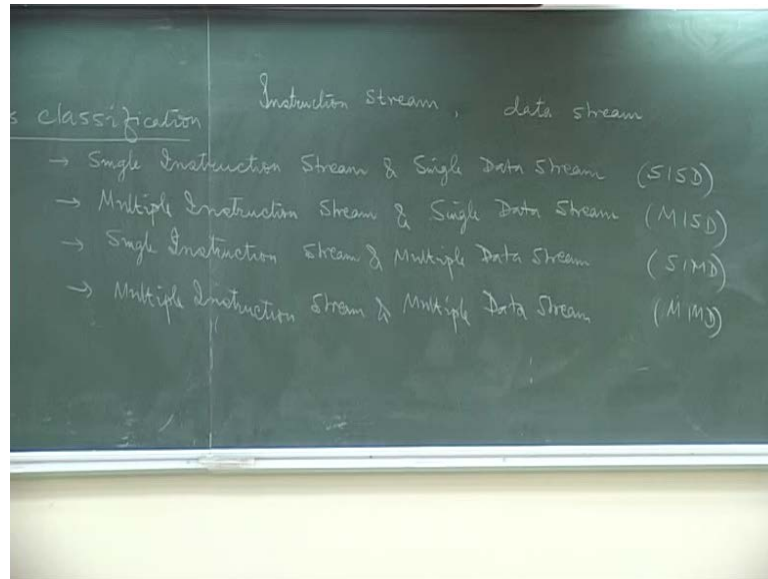 Instruction stream, data stream
s classification
→ Single Instruction Stream & Single Data Stream (SISD)
→ Multiple Instruction Stream & Single Data Stream (MISD)
→ Single Instruction Stream & Multiple Data Stream (SIMD)
→ Multiple Instruction Stream & Multiple Data Stream (MIMD)